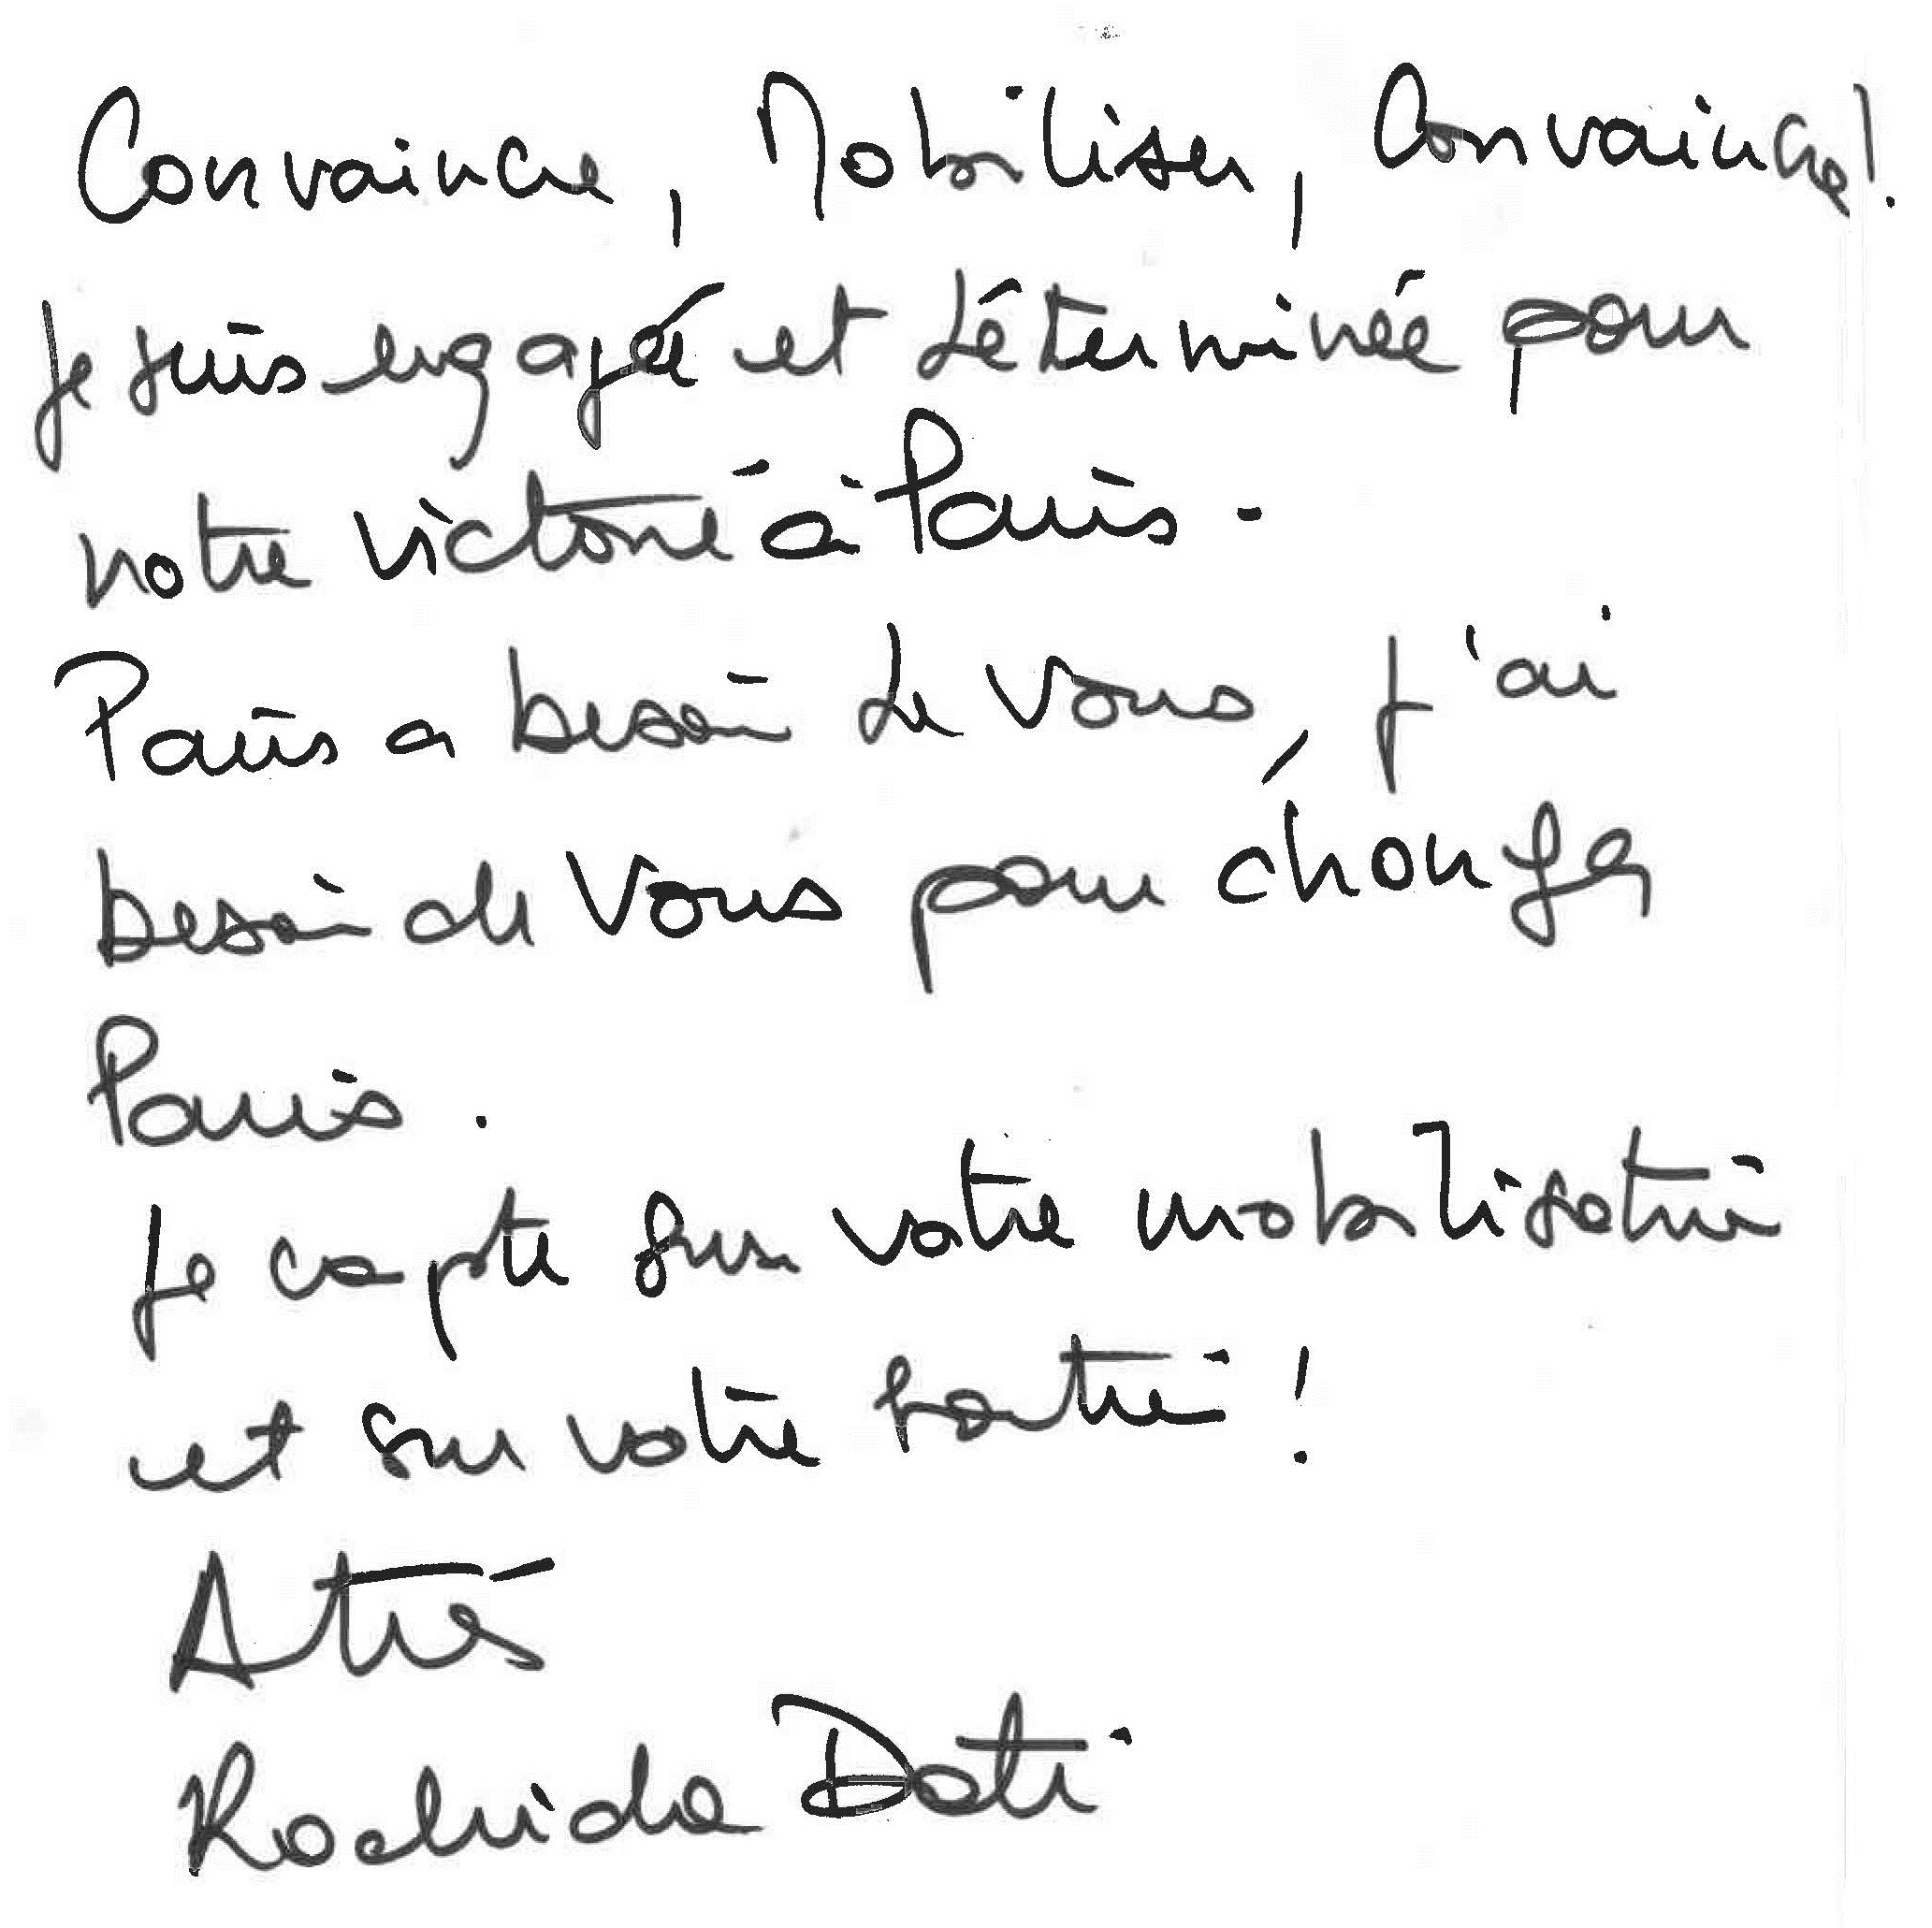 Convaincre, Mobiliser, Convaincre !
Je suis engagée et déterminée pour
notre victoire à Paris.
Paris a besoin de vous, j'ai
besoin de vous pour changer
Paris.
Je compte sur votre mobilisation
et sur votre soutien !
Rachida Dati